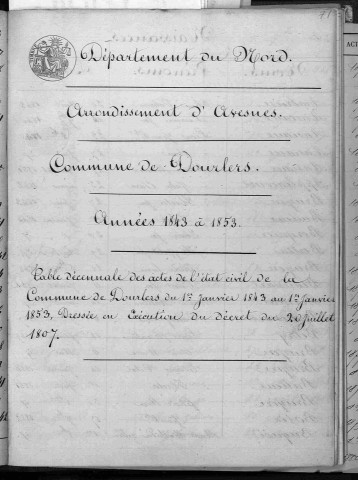 Département du Nord.
Arrondissement d'Avesnes.
Commune de Dourlers.
Années 1843 à 1853.
Table décennale des actes de l'état civil de la
Commune de Dourlers du 1er janvier 1843 au 1er janvier
1853, Dressée en Exécution du décret du 20 juillet
1807.
ACT